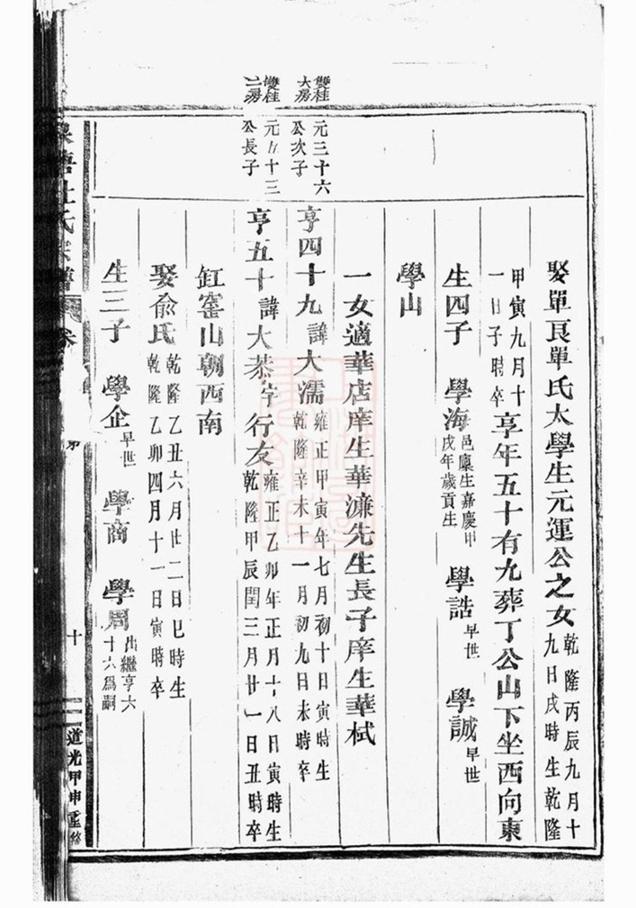 娶單良單氏太學生元運公之女乾隆丙辰九月十九日戌時生乾隆
甲寅九月十一日子時卒享年五十有九葬丁公山下坐西向東
生四子 學海邑廩生嘉慶甲戌年歲貢生 學誥早世 學誠早世
學山
一女適華店庠生華濂先生長子庠生華栻
雙桂大房
元三十六公次子
亨四十九諱大濡雍正甲寅年七月初十日寅時生乾隆辛未十一月初九日未時卒
雙桂二房
元五十三公長子
亨五十諱大恭字行友雍正乙卯年正月十八日寅時生乾隆甲辰閏三月廿一日丑時卒
缸窑山朝西南
娶俞氏乾隆乙丑六月廿二日巳時生乾隆乙卯四月十一日寅時卒
生三子 學企早世 學商 學周出繼亨六十六為嗣
杜氏宗譜 卷 十 道光甲申重修